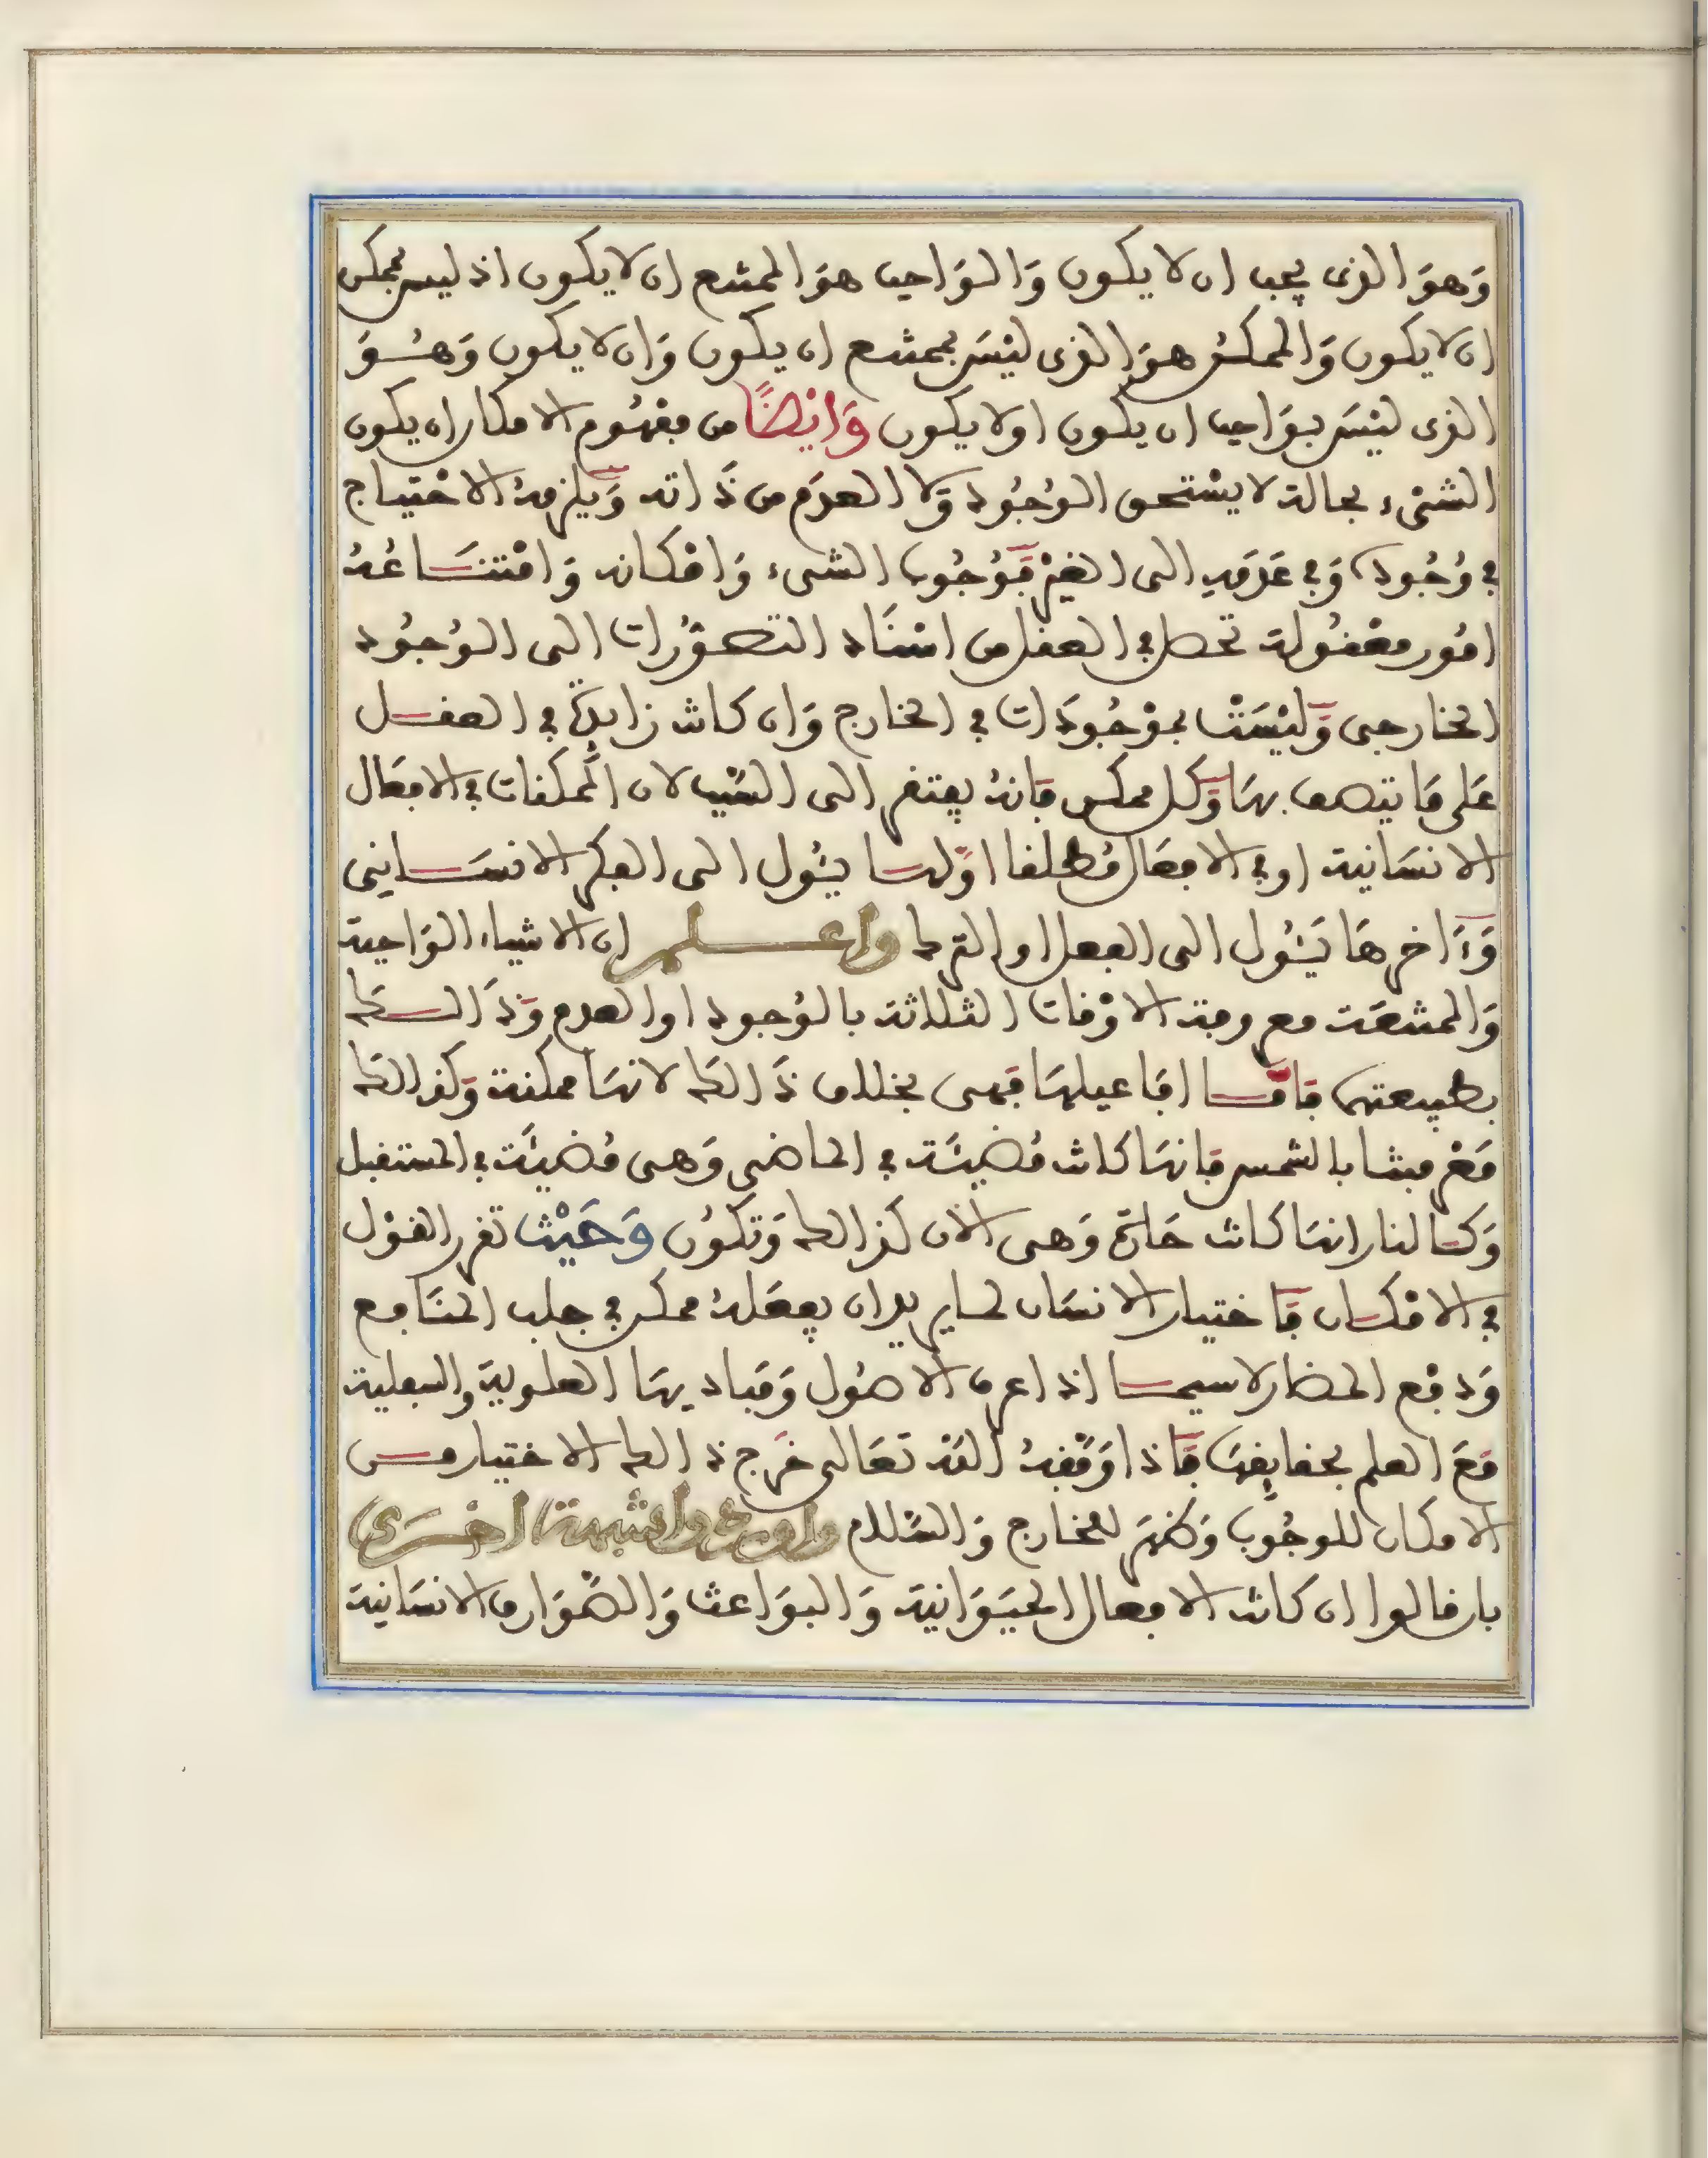 وَهوَ الذى يجب ان لا يكون وَالوَاجب هوَ الممتنع ان لا يكون اذ ليس بممكن
ان لا يكون وَالممكن هوَ الذى ليْسَ بممتنع ان يكون وَان لا يكون وَهُوَ
الذى ليْسَ بوَاجب ان يكون او لا يكون وَايْضًا من مفهُوم الامكان ان يكون
الشىْء بحالة لا يسْتحق الوُجُود وَلا العدَم من ذَاته وَيلزمهُ الاحْتياج
في وُجُوده وَفي عَدَمهِ الى الغيْر فَوُجُوب الشىء وَامْكانه وَامْتنَاعُهُ
امُور معْقُولة تحصل في العقل من اسْنَاد التصوّرُرات الى الوُجُود
الخارجى وَليْسَتْ بموْجُودَات في الخارج وَان كانت زايدة في العقل
عَلى مَا يتصف بهَا وَكل ممكن فَانهُ يفتقر الى السَّبب لان الممكنات في الافعَال
الانسَانية او في الافعَال مُطلقا اوّلها يئُول الى الفكر الانسَانِى
وَءَاخرهَا يَئُول الى الفعل او الترك واعلم ان الاشياء الوَاجبة
وَالممتنعَة معروفة الاوْقات الثلاثة بالوُجود او العدم وَذَالكَ
بطبيعتها فَامَّا افَاعيلهَا فهى بخلاف ذَالكَ لانهَا ممكنة وَكذالكَ
مَعْرفتنا بالشمس فَانهَا كانت مُضيئَة في الماضى وَهى مُضيئَة في المستقبل
وَكالنار انهَا كانت حَارة وَهى الان كذالك وَتكوُن وَحَيْث تقرر القوْل
في الامْكان فَاختيار الانسَان لما يريد ان يفعَلهُ ممكن في جلب المنَافع
وَدفْع المضار لاسيما اذا عرف الاصُول وَمَباديهَا العلوية والسفلية
مَعَ العلم بحقايقهَا فَاذا وَفّقهُ اللهُ تعَالى خرَج ذالك الاختيار من
الامكان للوجُوب وَظهَر للخارج وَالسَّلام واوردوا شبهة اخْرَى
بان قالوا ان كانت الافعال الحيَوَانية وَالبوَاعث وَالصَّوَارف الانسَانية